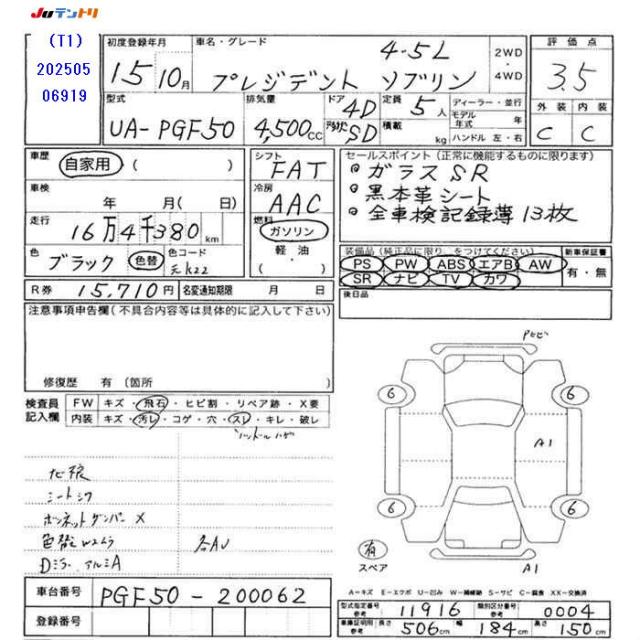 JUテントリ
(T1)
202505
06919
初度登録年月
15 10月
車名・グレード
4-5L
プレジデント ソブリン
2WD
・
4WD
評価点
3.5
外装 内装
C C
型式
UA-PGF50
排気量
4,500cc
ドア 4D
形状 SD
定員 5人
積載 kg
ディーラー・並行
モデル年式 年
ハンドル 左・右
車歴
自家用 ( )
車検
年 月(日)
走行
16万4千380km
色
ブラック 色替
色コード
元K22
シフト
FAT
冷房
AAC
燃料
ガソリン
軽・油
( )
セールスポイント(正常に機能するものに限ります)
ガラスSR
黒本革シート
全車検記録簿13枚
装備品(純正品に限り○をつけてください)
PS PW ABS エアB AW
SR ナビ TV カワ
新車保証書
有・無
R券 15,710円
名変通知期限 月 日
後日品
注意事項申告欄(不具合内容等は具体的に記入して下さい)
修復歴 有(箇所
検査員
記入欄
FW キズ・飛石・ヒビ割・リペア跡・X要
内装 キズ・汚レ・コゲ・穴・スレ・キレ・破レ
シートシワ
ボンネットダンパーX
色替
各AU
Dミラー アルミA
6
6
6
6
A1
A1
有
スペア
A-キズ E-エクボ U-凹み W-補修跡 S-サビ C-腐食 XX-交換済
車台番号 PGF50-200062
登録番号
型式指定番号 参考 11916
類別区分番号 参考 0004
車庫証明用 参考 長さ 506cm 幅 184cm 高さ 150cm